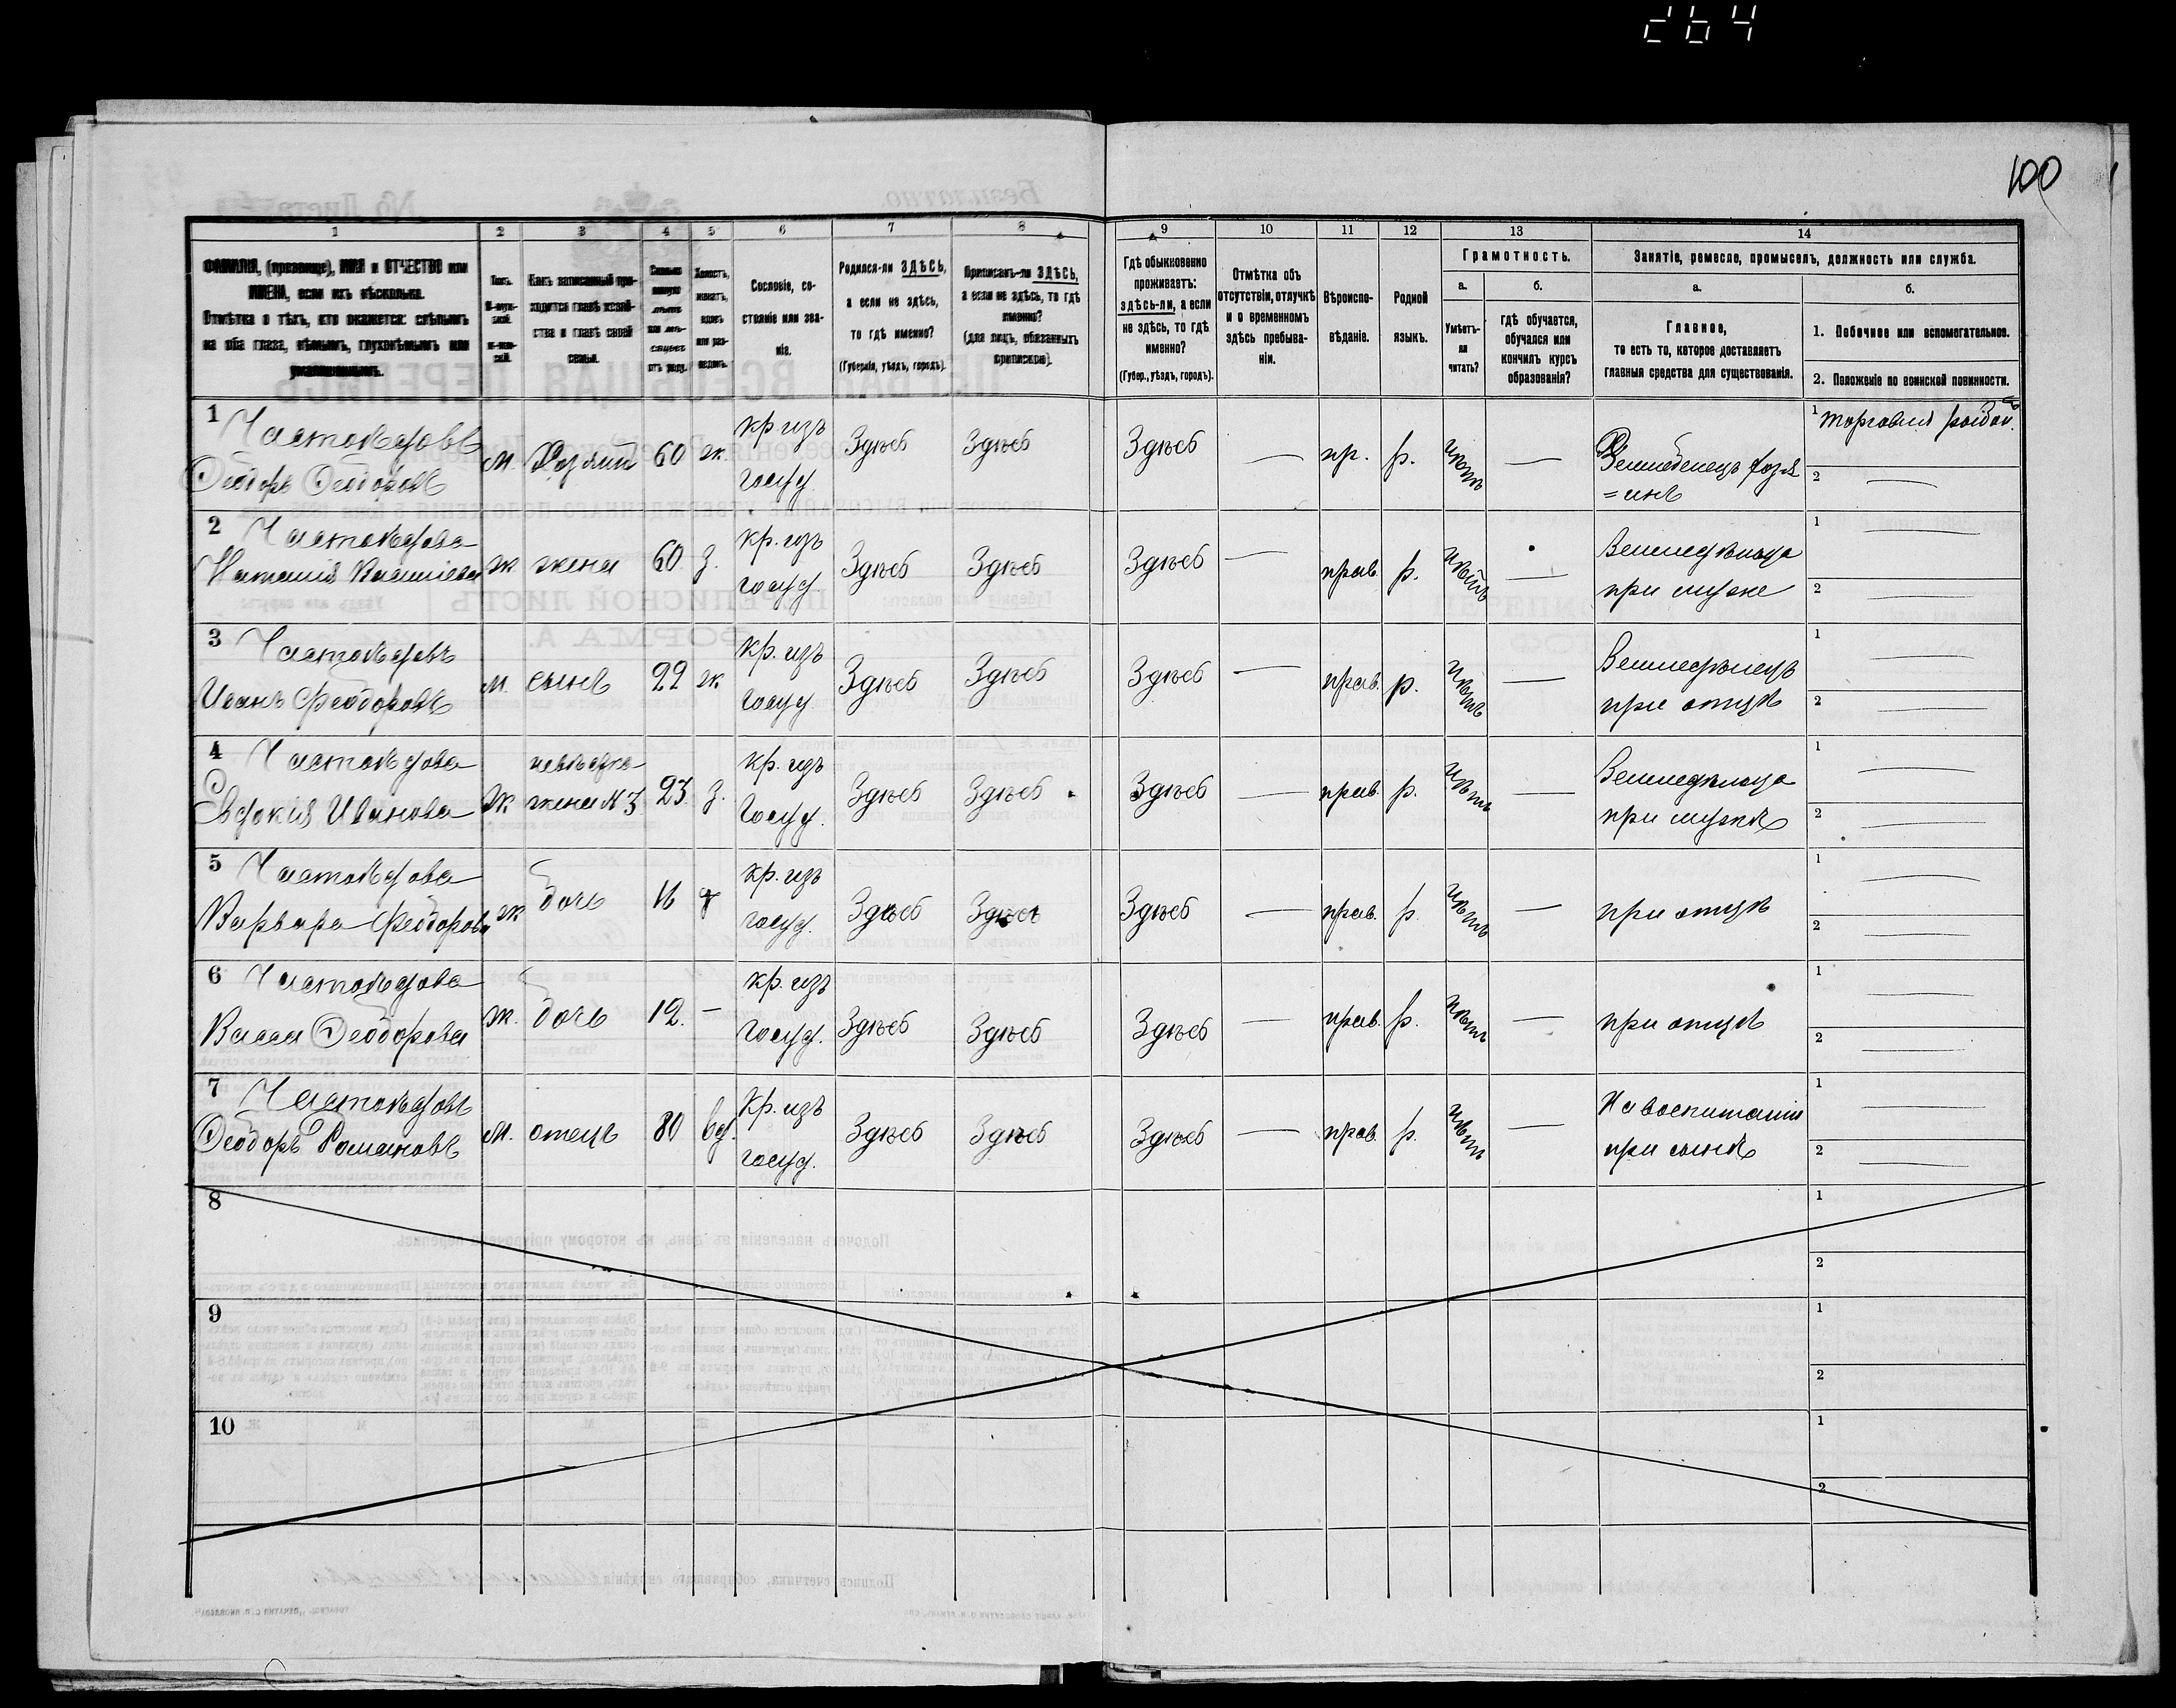 264
100
1 2 3 4 5 6 7 8 9 10 11 12 13 14
ФАМИЛІЯ, (прозвище), ИМЯ и ОТЧЕСТВО или
ИМЕНА, если ихъ нѣсколько.
Отмѣтка о тѣхъ, кто окажется: слѣпымъ
на оба глаза, нѣмымъ, глухонѣмымъ или
умалишеннымъ.
Полъ.
М-муж-
ской.
ж-жен-
скій.
Какъ записанный при-
ходится главѣ хозяй-
ства и главѣ своей
семьи.
Сколько
минуло
лѣтъ
или мѣ-
сяцевъ
отъ роду.
Холостъ,
женатъ,
вдовъ
или раз-
веденъ.
Сословіе, со-
стояніе или зва-
ніе.
Родился-ли ЗДѢСЬ,
а если не здѣсь,
то гдѣ именно?
(Губернія, уѣздъ, городъ).
Приписанъ-ли ЗДѢСЬ,
а если не здѣсь, то гдѣ
именно?
(для лицъ, обязанныхъ
припискою).
Гдѣ обыкновенно
проживаетъ:
здѣсь-ли, а если
не здѣсь, то гдѣ
именно?
(Губер., уѣздъ, городъ).
Отмѣтка объ
отсутствіи, отлучкѣ
и о временномъ
здѣсь пребыва-
ніи.
Вѣроиспо-
вѣданіе.
Родной
языкъ.
Грамотность.
а.
Умѣетъ-
ли
читать?
б.
гдѣ обучается,
обучался или
кончилъ курсъ
образованія?
Занятіе, ремесло, промыселъ, должность или служба.
а.
Главное,
то есть то, которое доставляетъ
главныя средства для существованія.
б.
1. Побочное или вспомогательное.
2. Положеніе по воинской повинности.
1 Частоѣдовъ
Ѳеодоръ Ѳеодоровъ
м. Хозяин 60 ж. кр изъ
госуд Здѣсь Здѣсь Здѣсь — пр. р. нѣтъ — Земледѣлецъ хозя
=инъ 1 торговля рыбой
2 —
2 Частоѣдова
Наталія Васильева ж жена 60 з. кр. изъ
госуд Здѣсь Здѣсь Здѣсь — прав. р. нѣтъ — Земледѣлица
при муже 1 —
2 —
3 Частоѣдовъ
Иванъ Феодоровъ м. сынъ 22 ж кр. изъ
госуд Здѣсь Здѣсь Здѣсь — прав. р. нѣтъ — Земледѣлецъ
при отцѣ 1 —
2 —
4 Частоѣдова
Евдокія Иванова ж невѣстка
жена №3 23. з. кр. изъ
Госуд. Здѣсь Здѣсь Здѣсь — прав. р. нѣтъ — Земледѣлица
при мужѣ 1 —
2 —
5 Частоѣдова
Варвара Феодорова ж дочь 16 д кр. изъ
госуд. Здѣсь Здѣсь Здѣсь — прав. р. нѣтъ — при отцѣ 1 —
2 —
6 Частоѣдова
Васса Ѳеодорова ж. дочь 12. — кр. изъ
госуд. Здѣсь Здѣсь Здѣсь — прав. р. нѣтъ — при отцѣ 1 —
2 —
7 Частоѣдовъ
Ѳеодоръ Романовъ м. отецъ 80 вд. Кр. изъ
госуд. Здѣсь Здѣсь Здѣсь — прав. р. нѣтъ — На воспитаніи
при сынѣ 1 —
2 —
8 1
2
9 1
2
10 1
2